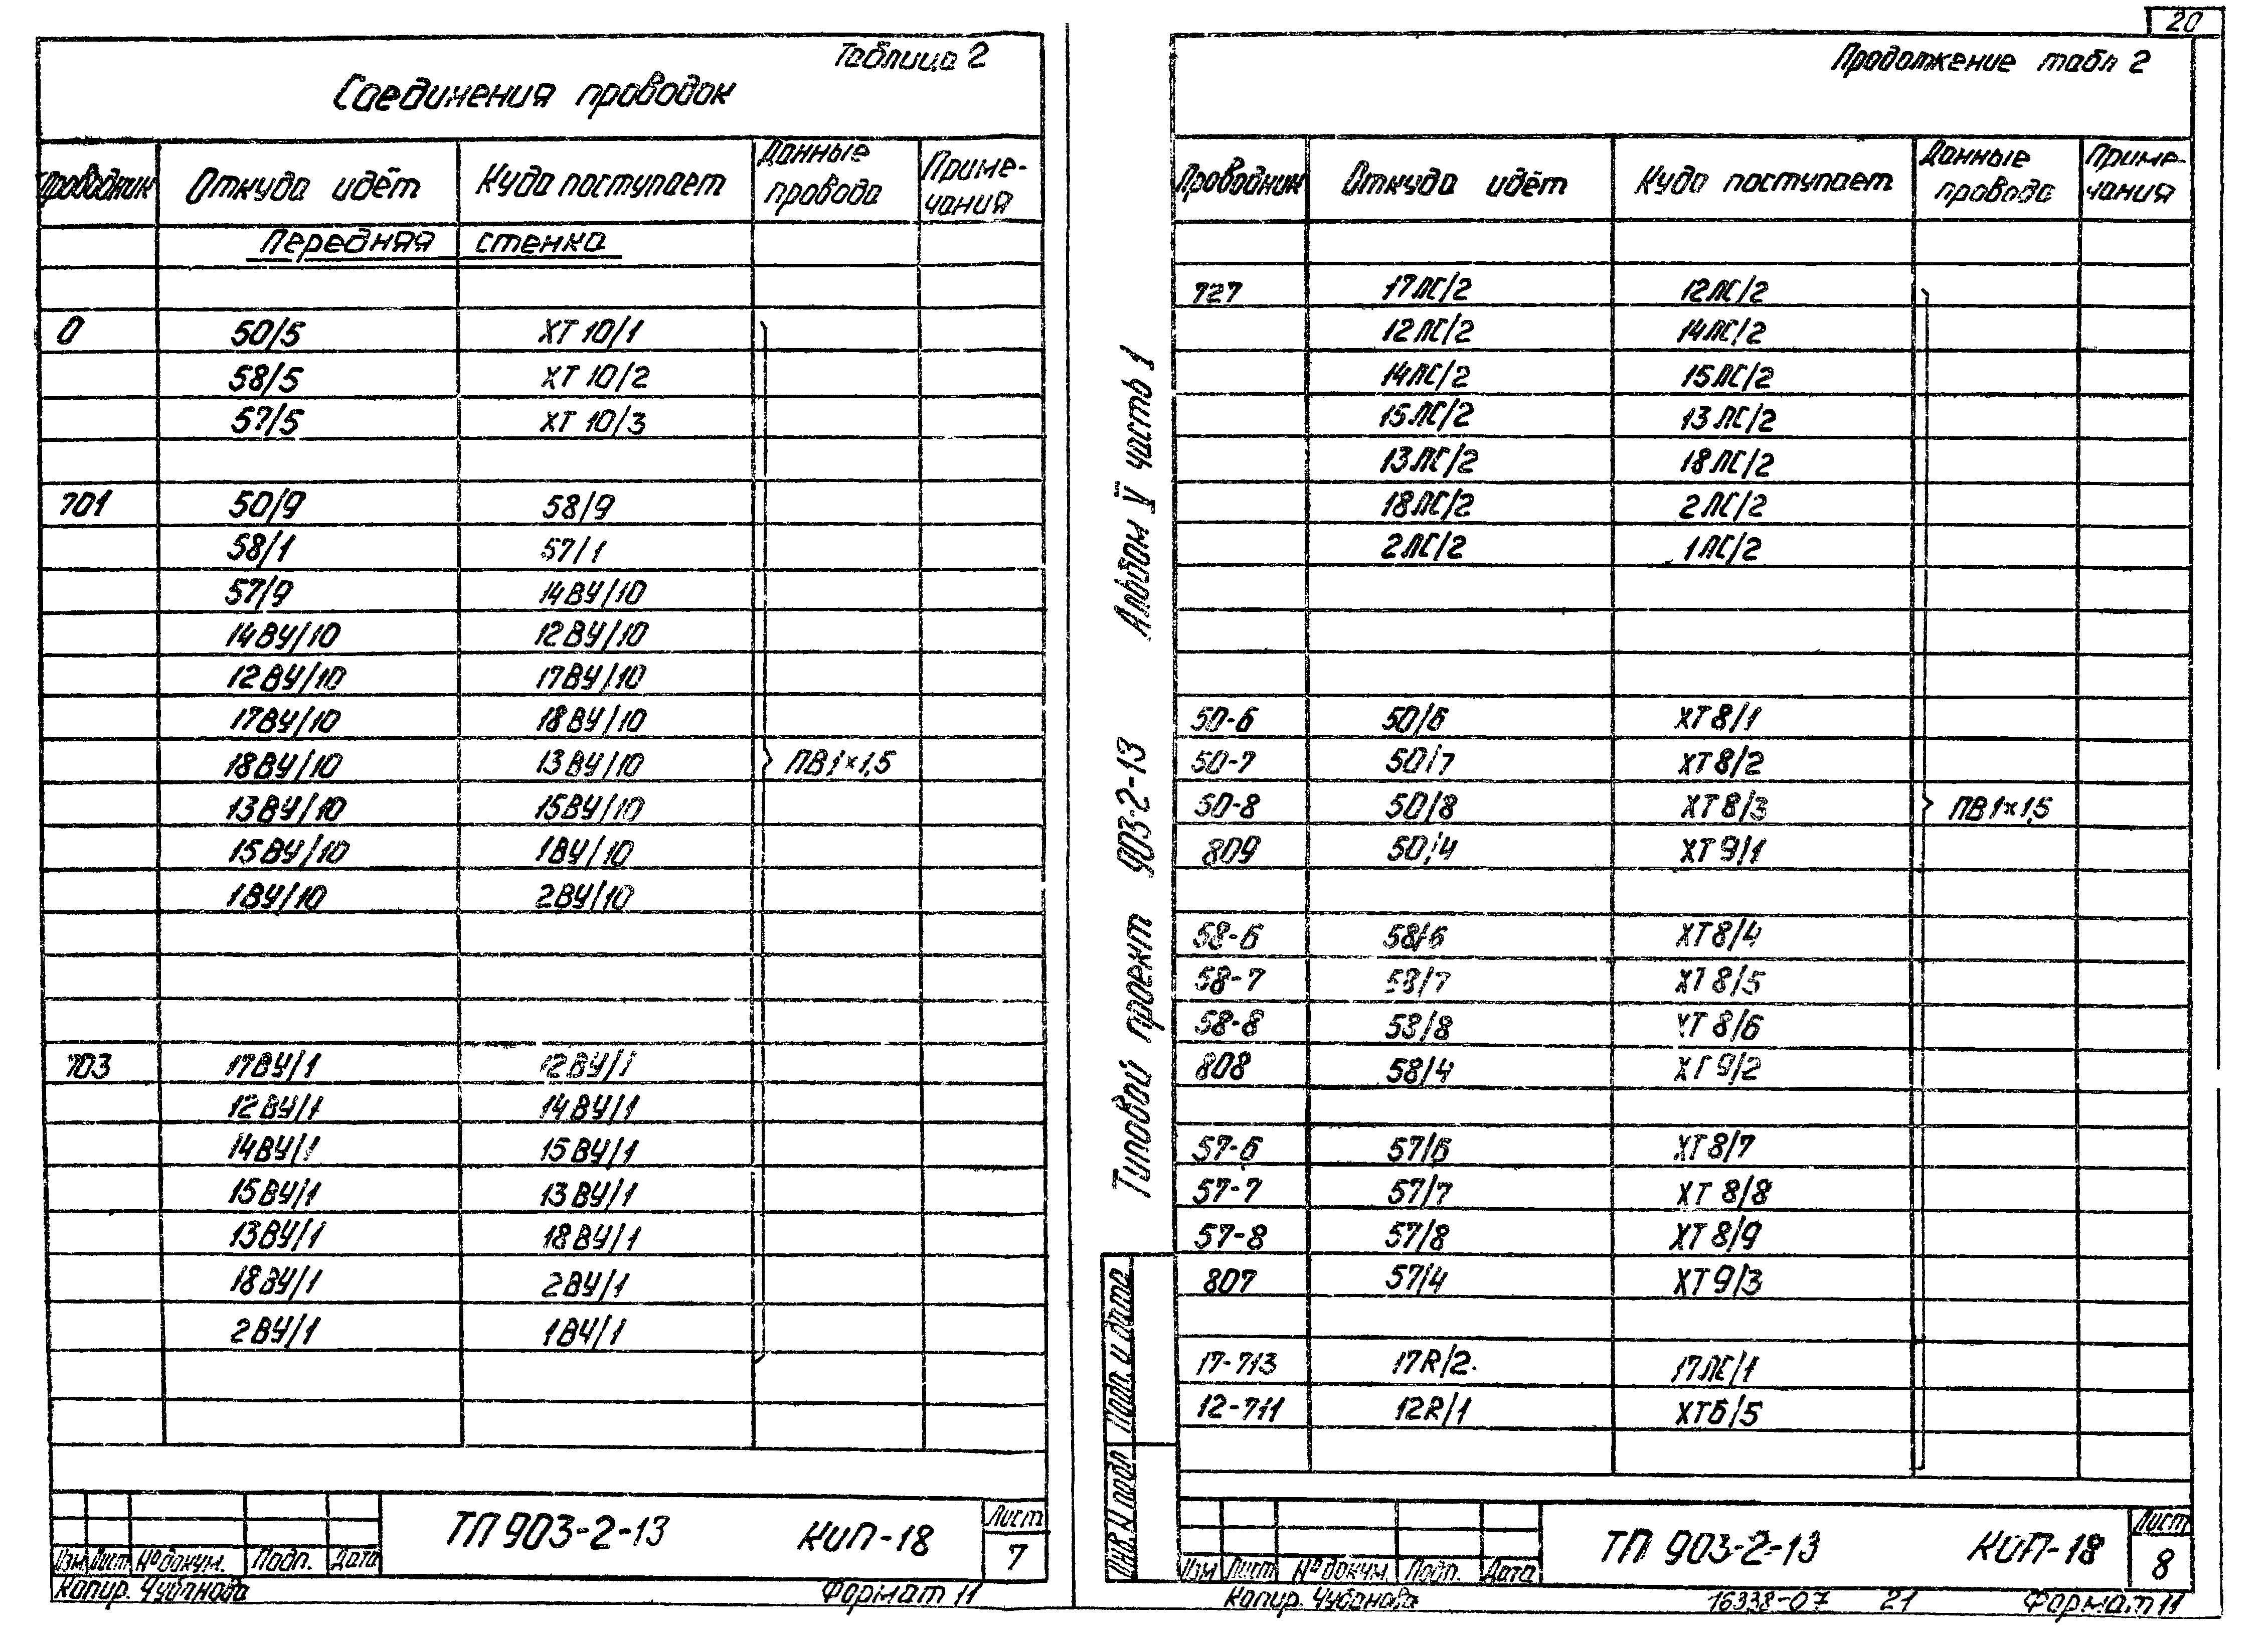 Таблица 2
Соединения проводок
Проводник Откуда идёт Куда поступает Данные провода Приме-чания
Передняя стенка
0 50/5 ХТ 10/1
58/5 ХТ 10/2
57/5 ХТ 10/3
701 50/9 58/9
58/1 57/1
57/9 14ВУ/10
14ВУ/10 12ВУ/10
12ВУ/10 17ВУ/10
17ВУ/10 18ВУ/10
18ВУ/10 13ВУ/10 ПВ1×1,5
13ВУ/10 15ВУ/10
15ВУ/10 1ВУ/10
1ВУ/10 2ВУ/10
703 17ВУ/1 12ВУ/1
12ВУ/1 14ВУ/1
14ВУ/1 15ВУ/1
15ВУ/1 13ВУ/1
13ВУ/1 18ВУ/1
18ВУ/1 2ВУ/1
2ВУ/1 1ВУ/1
ТП 903-2-13 КиП-18 Лист 7
Изм Лист № докум. Подп. Дата
Копир. Чубанова Формат 11
20
Продолжение табл 2
Проводник Откуда идёт Куда поступает Данные провода Приме-чания
727 17ЛС/2 12ЛС/2
12ЛС/2 14ЛС/2
14ЛС/2 15ЛС/2
15ЛС/2 13ЛС/2
13ЛС/2 18ЛС/2
18ЛС/2 2ЛС/2
2ЛС/2 1ЛС/2
50-6 50/6 ХТ8/1
50-7 50/7 ХТ8/2
50-8 50/8 ХТ8/3 ПВ1×1,5
809 50/4 ХТ9/1
58-6 58/6 ХТ8/4
58-7 58/7 ХТ8/5
58-8 58/8 ХТ8/6
808 58/4 ХТ9/2
57-6 57/6 ХТ8/7
57-7 57/7 ХТ8/8
57-8 57/8 ХТ8/9
807 57/4 ХТ9/3
17-713 17R/2 17ЛС/1
12-711 12R/1 ХТ6/5
Типовой проект 903-2-13 Альбом V часть 1
Инв. N подл Подп. и дата
ТП 903-2-13 КиП-18 Лист 8
Изм Лист № докум. Подп. Дата
Копир. Чубанова 16338-07 21 Формат 11